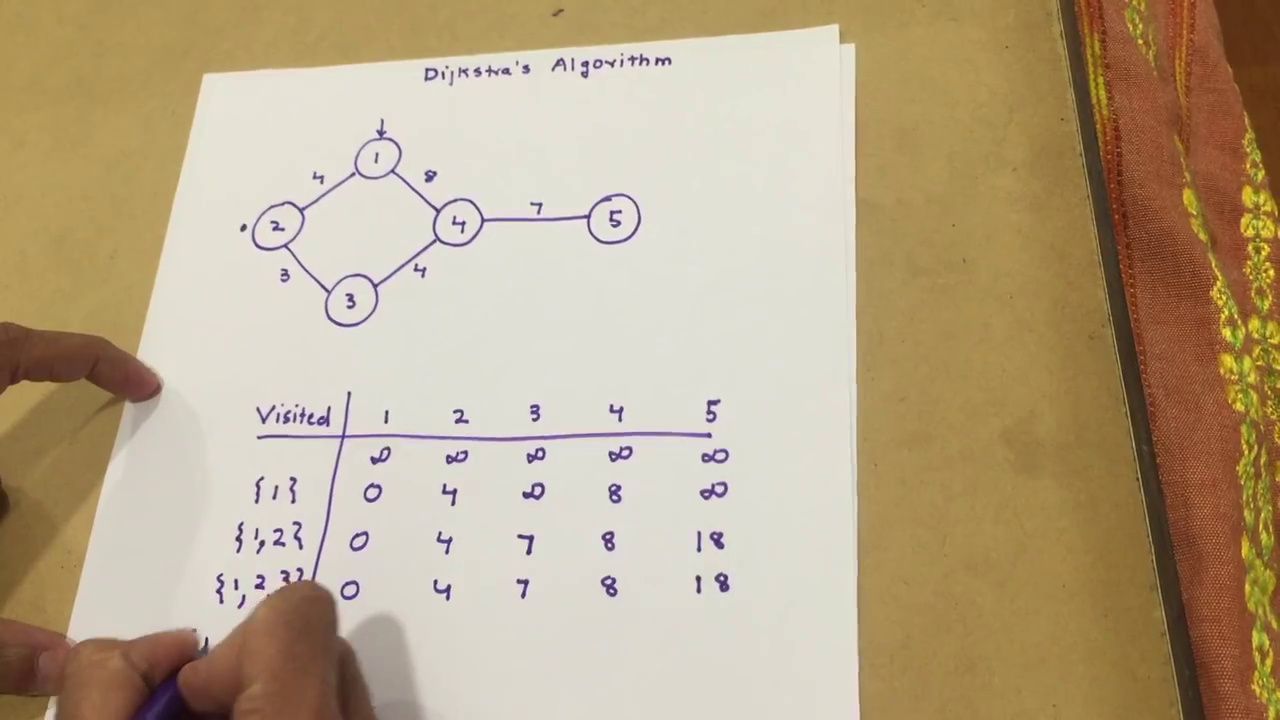 Dijkstra's Algorithm
1
4 8
2 4 7 5
3 4
3
Visited 1 2 3 4 5
∞ ∞ ∞ ∞ ∞
{1} 0 4 ∞ 8 ∞
{1,2} 0 4 7 8 18
{1,2,3} 0 4 7 8 18